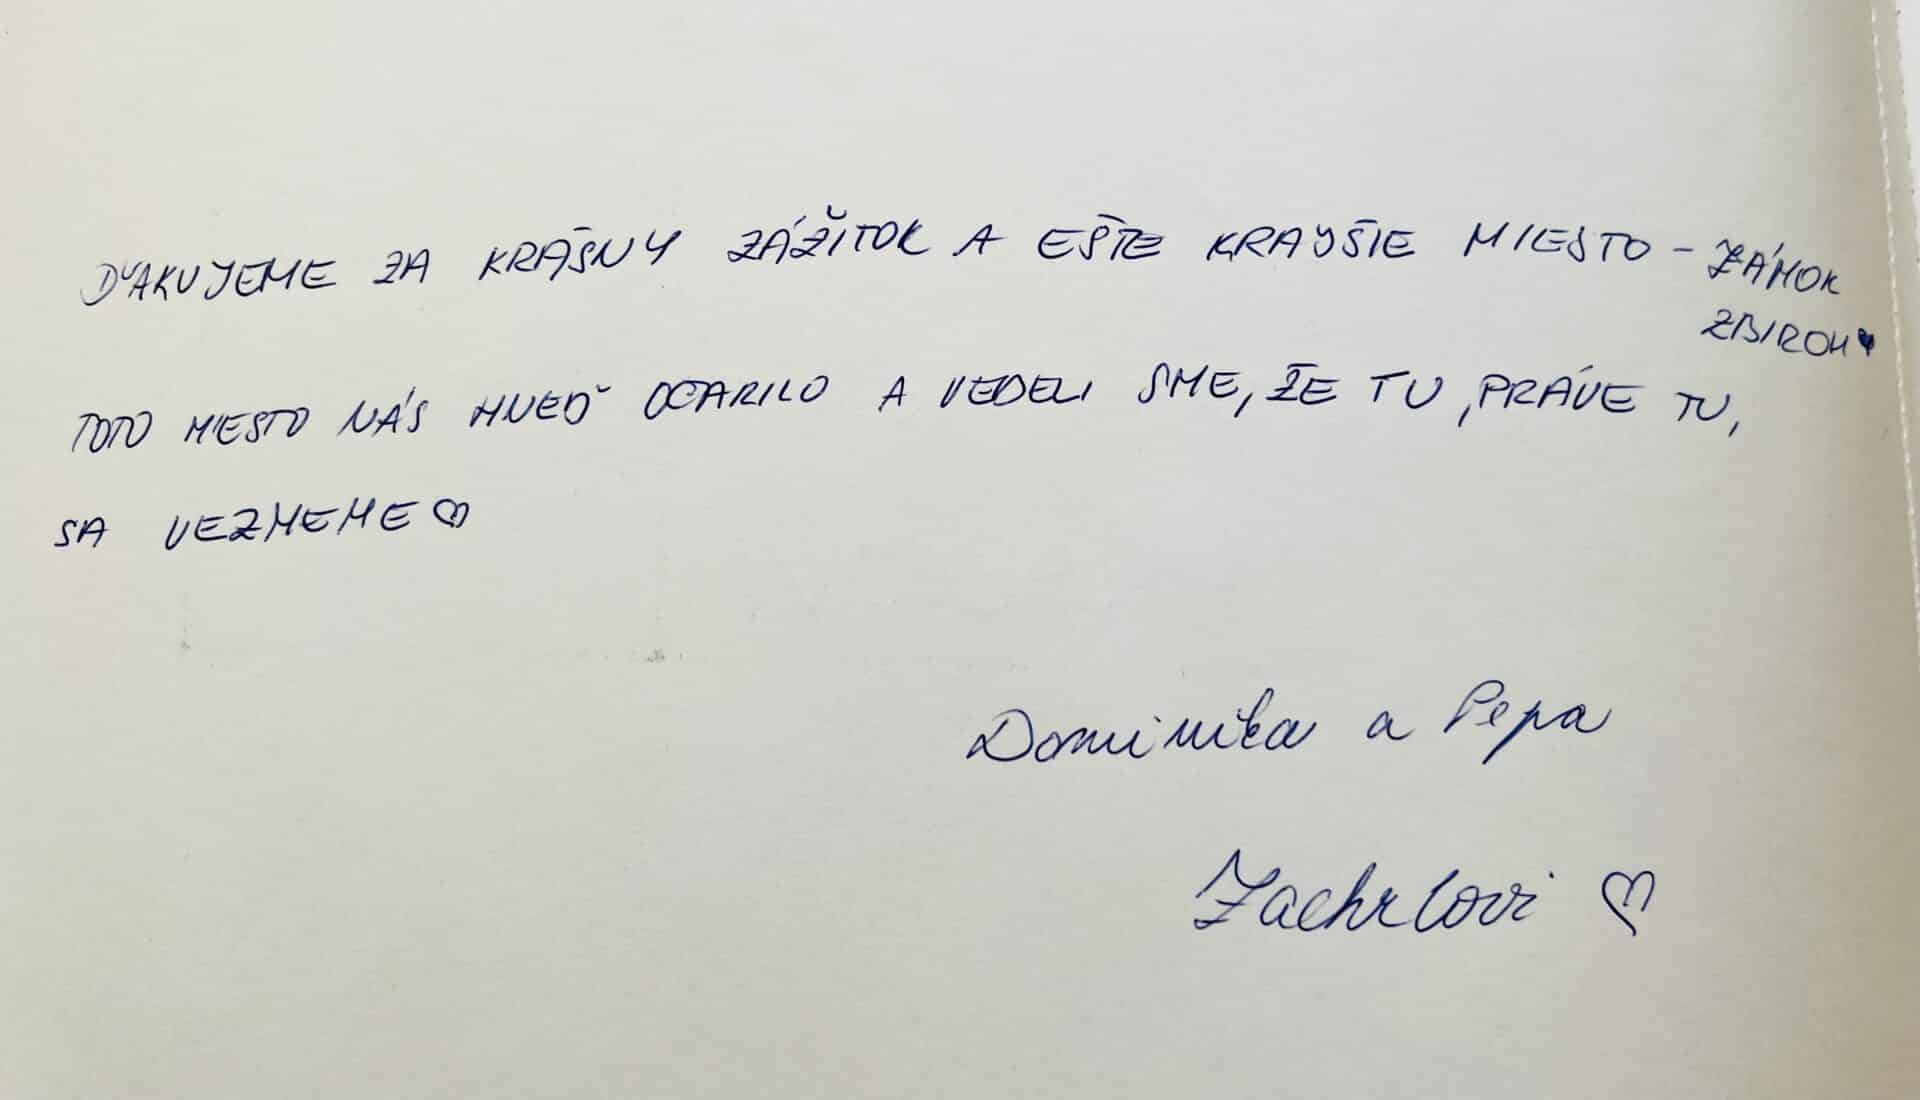 ĎAKUJEME ZA KRÁSNY ZÁŽITOK A EŠTE KRAJŠIE MIESTO - ZÁMOK
ZBIROH♥
TOTO MIESTO NÁS HNEĎ OČARILO A VEDELI SME, ŽE TU, PRÁVE TU,
SA VEZMEME♡
Dominika a Pepa
Zachrlovi ♡